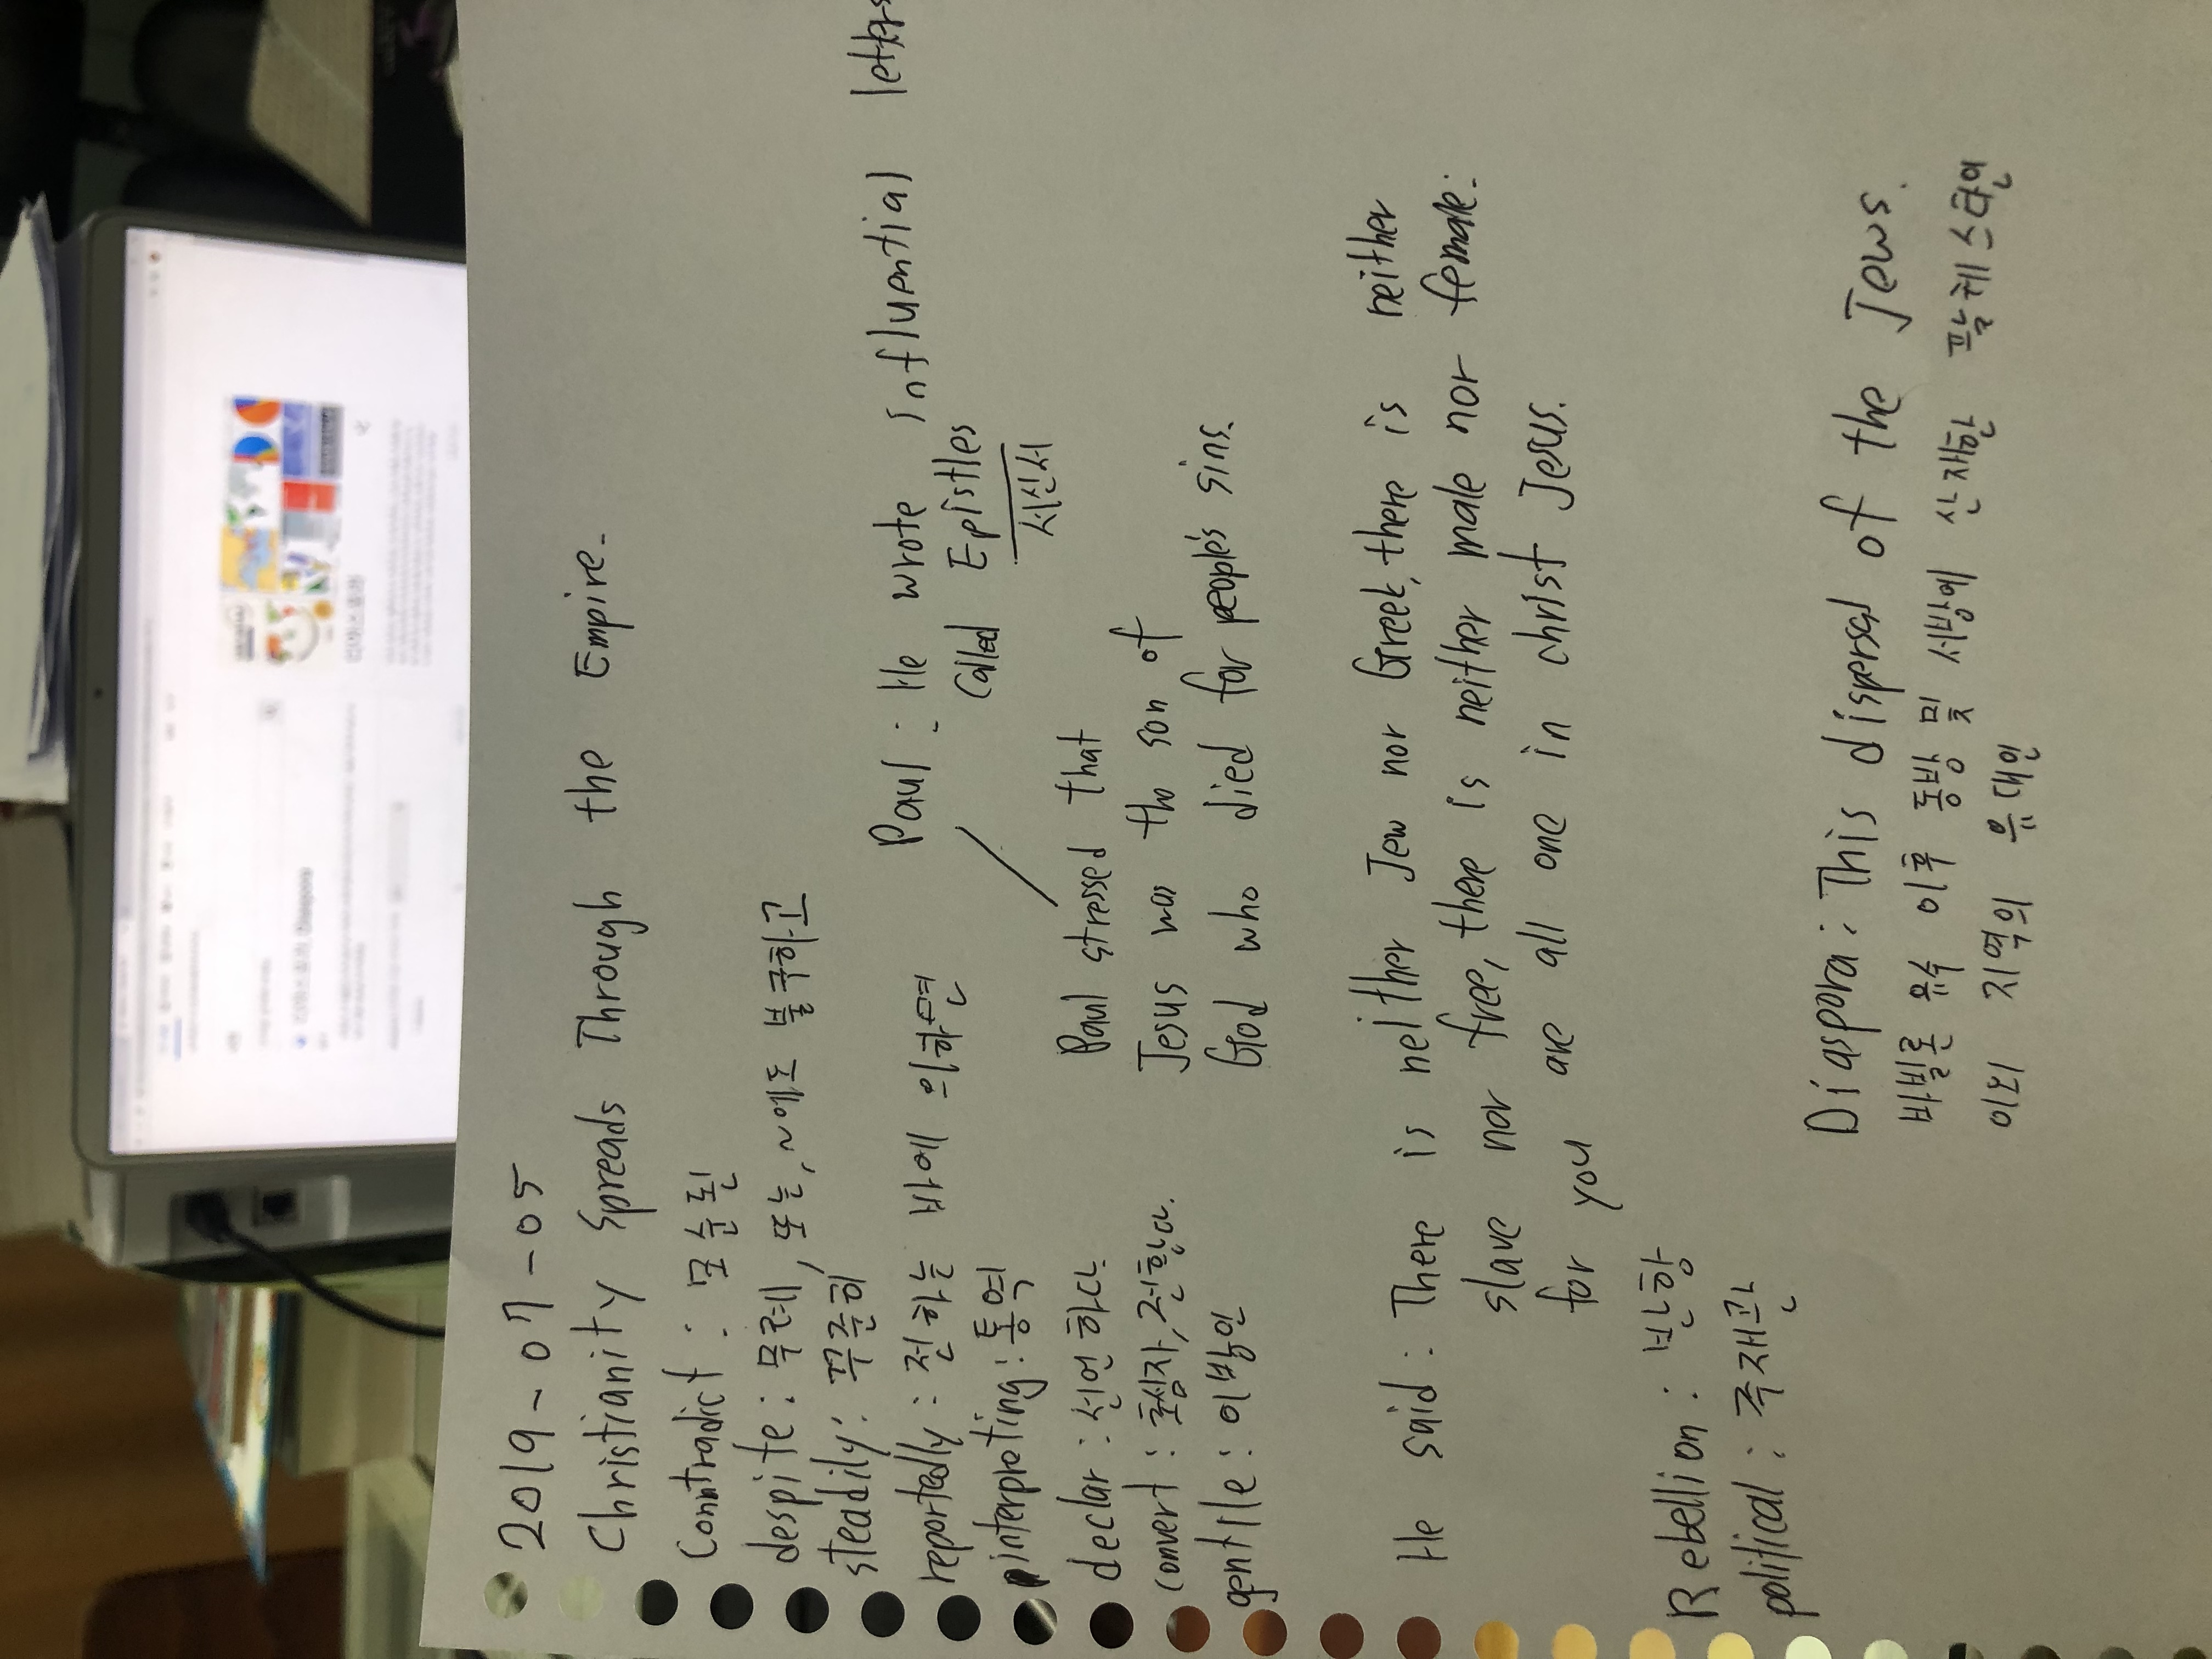 2019-07-05
Christianity Spreads Through the Empire.
Conntradict : 모순된
despite : 무려, 또는, ~에도 불구하고
steadily : 꾸준히
reportedly : 전하는 바에 의하면
interpreting : 통역
declar : 선언하다
convert : 회심자, 전향다.
gentile : 이방인
Paul : He wrote influential letters
called Epistles
서신서
Paul stressed that
Jesus was tho son of
God who died for people's sins.
He said : There is neither Jew nor Greek, there is neither
slave nor free, there is neither male nor female :
for you are all one in christ Jesus.
Rebellion : 반항
political : 주재관
Diaspora : This dispersal of the Jews.
바빌론 유수 이후 동방 및 서방에 산재한 팔레스타인
이외 지역의 유대인